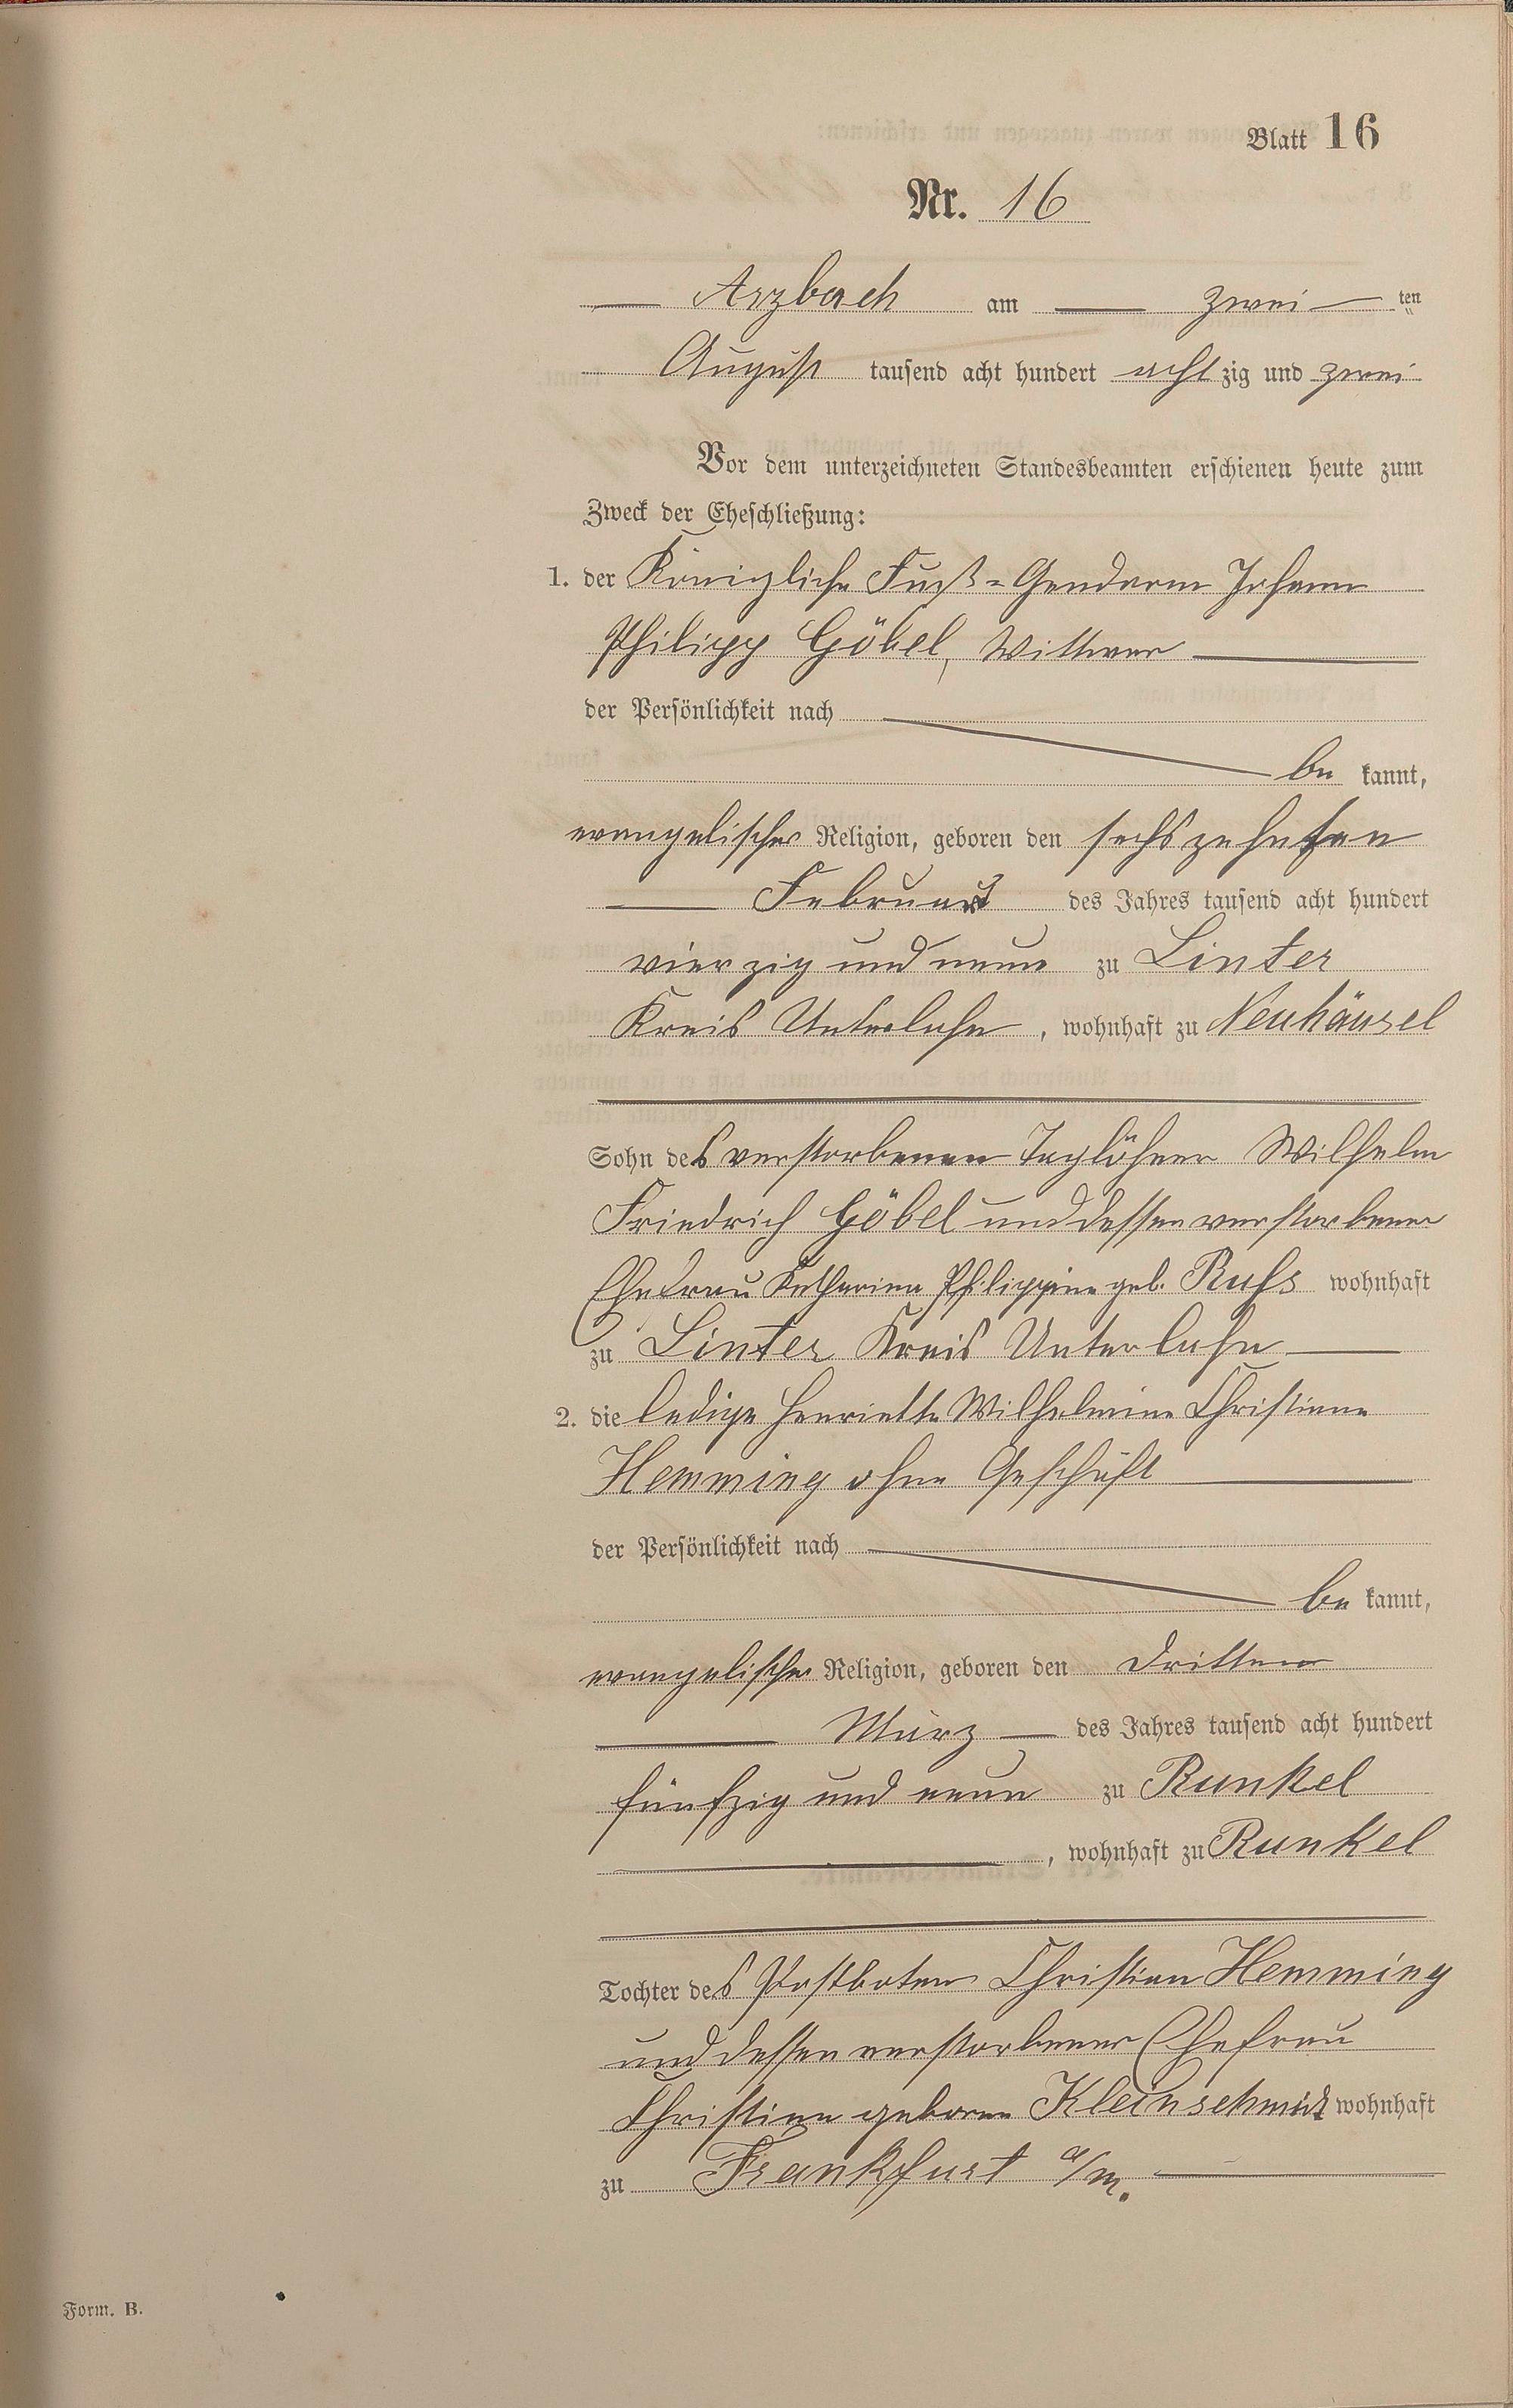 Blatt 16
Nr. 16
Arzbach am zwei ten
August tausend acht hundert acht zig und zwei
Vor dem unterzeichneten Standesbeamten erschienen heute zum
Zweck der Eheschließung:
1. der Königliche Fuß-Gendarm Johann
Philipp Göbel, Wittwer
der Persönlichkeit nach
be kannt,
evangelischer Religion, geboren den sechszehnten
Februar des Jahres tausend acht hundert
vierzig und neun zu Linter
Kreis Unterlahn, wohnhaft zu Neuhäusel
Sohn des verstorbenen Taglöhner Wilhelm
Friedrich Göbel und dessen verstorbener
Ehefrau Katharina Philippine geb. Rufs wohnhaft
zu Linter Kreis Unterlahn
2. die ledige Henriette Wilhelmine Christiane
Hemming ohne Geschäft
der Persönlichkeit nach
be kannt,
evangelischer Religion, geboren den dritten
März des Jahres tausend acht hundert
fünfzig und neun zu Runkel
, wohnhaft zu Runkel
Tochter des Postboten Christian Hemming
und dessen verstorbener Ehefrau
Christine geborne Kleinschmidt wohnhaft
zu Frankfurt a/m.
Form. B.